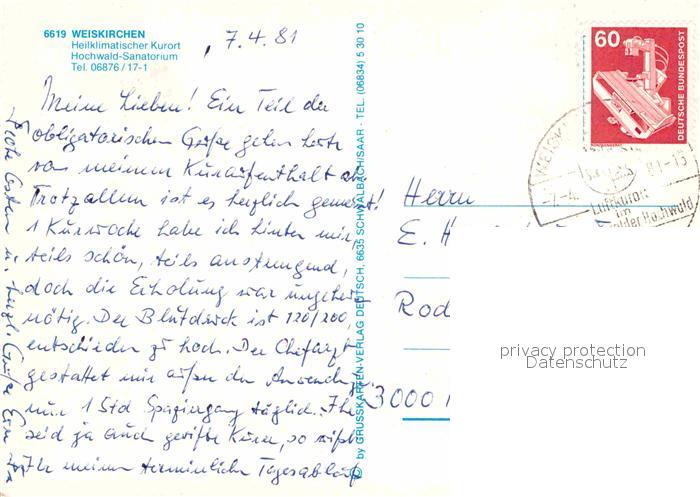 6619 WEISKIRCHEN
Heilklimatischer Kurort
Hochwald-Sanatorium
Tel. 06876/17-1
7.4.81
Meine Lieben! Ein Teil der
obligatorischen Grüße gehen heute
von meinem Kuraufenthalt aus.
Trotzallem ist es herzlich gemeint!
1 Kurwoche habe ich hinter mir,
teils schön, teils anstrengend,
doch die Erholung war ungeheuer
nötig. Der Blutdruck ist 120/200,
entschieden zu hoch. Der Chefarzt
gestattet mir außer den Anwendg.
nur 1 Std Spaziergang täglich. Ihr
seid ja auch geprüfte Kurer, so wißt
Ihr meinen terminlichen Tagesablauf
Frohe Ostern u. herzl. Grüße
© by GRUSSKARTEN-VERLAG DEUTSCH, 6635 SCHWALBACH/SAAR · TEL. (06834) 5 30 10
60
DEUTSCHE BUNDESPOST
WEISK
-7.-4. 81-15
Luftkurort
im
Hochwald
Herrn
E. H
Rod
3000
privacy protection
Datenschutz